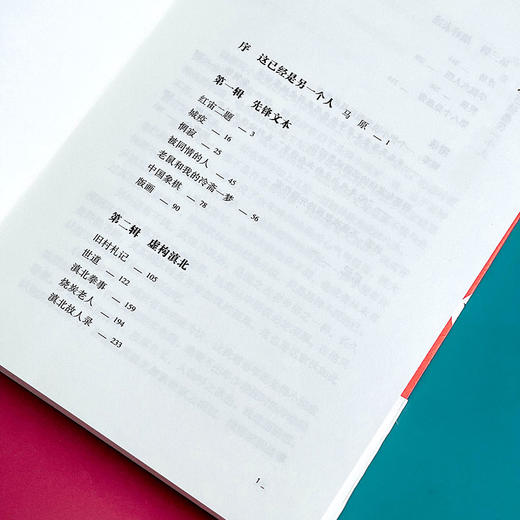 序 这已经是另一个人 马 原 — 1
第一辑 先锋文本
红宙二题 — 3
城疫 — 16
惆寂 — 25
被同情的人 — 45
老鼠和我的冷斋一梦 — 56
中国象棋 — 78
版画 — 90
第二辑 虚构滇北
旧村札记 — 105
世道 — 122
滇北拳事 — 159
烧炭老人 — 194
滇北故人录 — 233
1 —